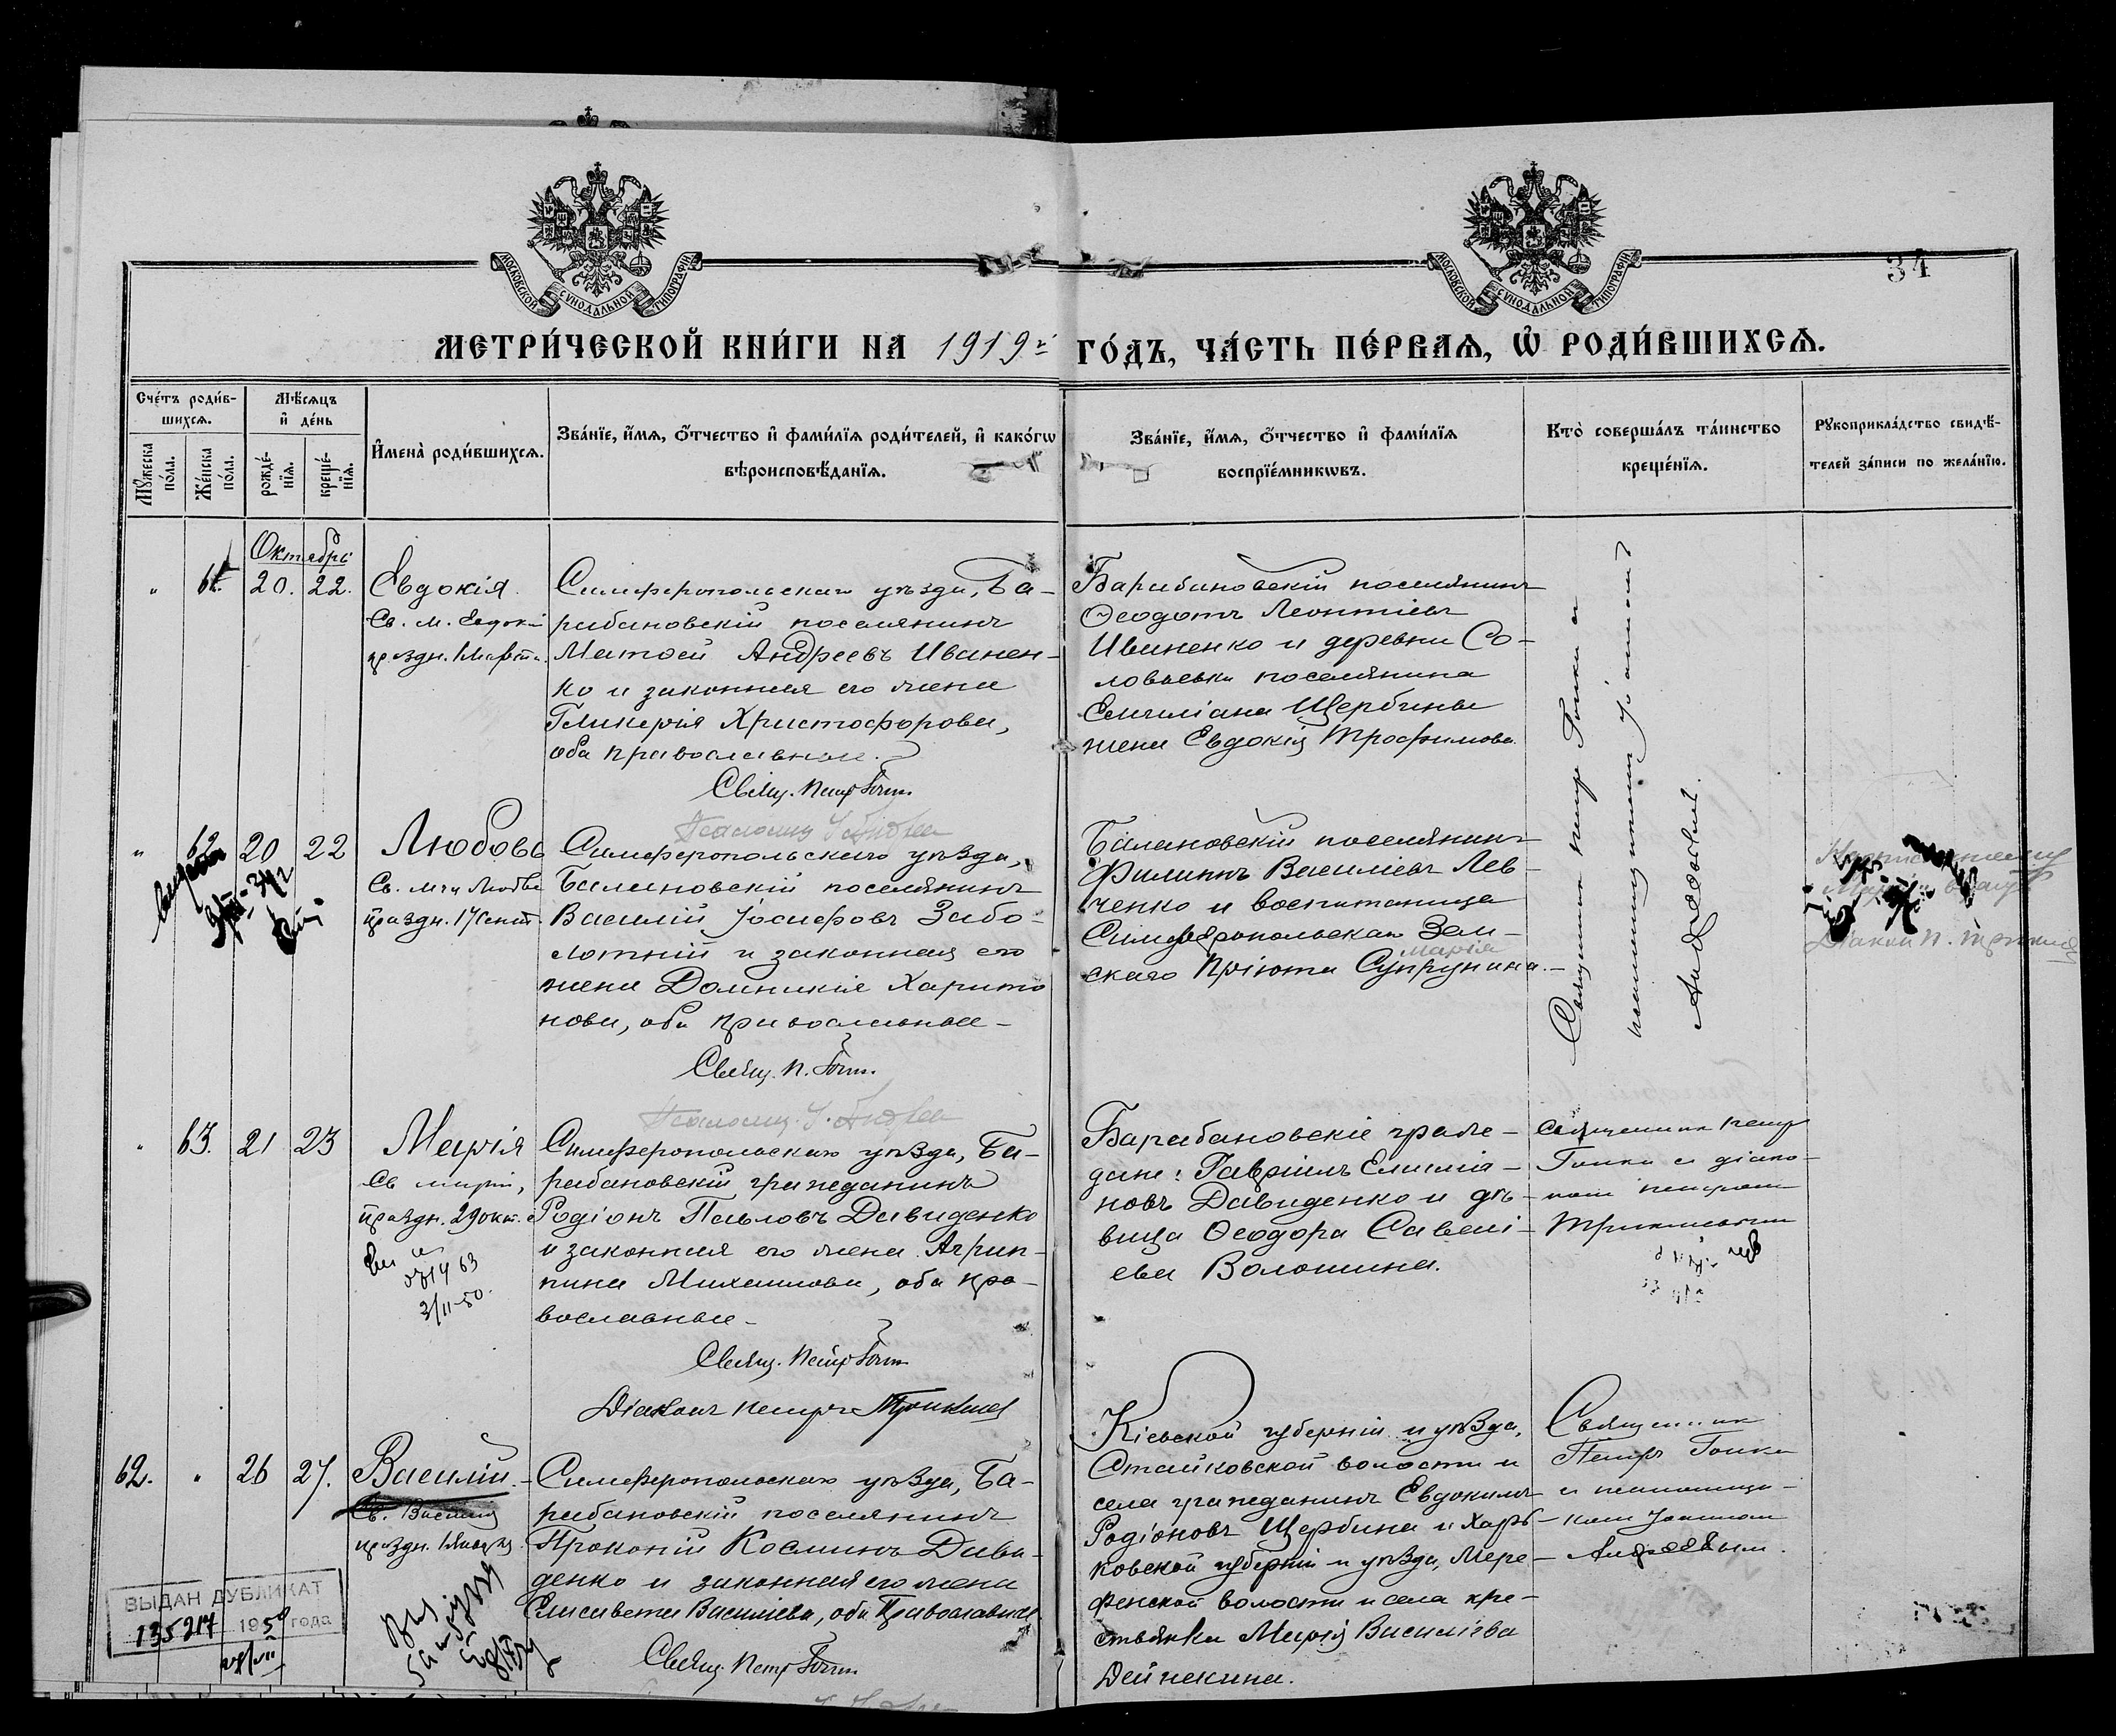 МОСКОВСКОЙ СѴНОДАЛЬНОЙ ТИПОГРАФІИ
МОСКОВСКОЙ СѴНОДАЛЬНОЙ ТИПОГРАФІИ
34
МЕТРИ́ЧЕСКОЙ КНИ́ГИ НА 1919й ГО́ДЪ, ЧА́СТЬ ПЕ́РВАѦ, Ѡ҆ РОДИ́ВШИХСѦ.
Сче́тъ роди́в-
шихсѧ.
Мꙋ́жеска
по́ла.
Же́нска
по́ла.
Мѣ́сѧцъ
и҆ де́нь
рожде́-
нїѧ.
креще́-
нїѧ.
И҆мена̀ роди́вшихсѧ.
Зва́нїе, и҆́мѧ, ѻ҆́тчество и҆ фами́лїѧ роди́телей, и҆ како́гѡ
вѣроисповѣ́данїѧ.
Зва́нїе, и҆́мѧ, ѻ҆́тчество и҆ фами́лїѧ
воспрїе́мникѡвъ.
Кто̀ соверша́лъ та́инство
креще́нїѧ.
Рꙋкоприкла́дство свидѣ́-
телей за́писи по жела́нїю.
Октябрь
" 61. 20. 22. Евдокія
Св. м. Евдокіи
праздн. 1 Марта.
Симферопольскаго уѣзда, Ба-
рабановскій поселянинъ
Матѳей Андреевъ Иванен-
ко и законная его жена
Гликерія Христофорова,
оба православные.
Свящ. Петръ Гопка
Барабановскій поселянинъ
Ѳеодотъ Леонтіевъ
Иваненко и деревни Со-
ловьевки поселянина
Емиліана Щербины
жена Евдокія Трофимова.
Священникъ Петръ Гопка и
псаломщикъ Іоаннъ
Андреевъ.
Псаломщ. І. Андреев
" 62 20 22 Любовь
Св. мч. Любве
праздн. 17 Сент.
Симферопольскаго уѣзда,
Балановскій поселянинъ
Василій Іосифовъ Забо-
лотній и законная его
жена Домникія Харито
нова, оба православные
Свящ. П. Гопка
Балановскій поселянинъ
Филиппъ Василіевъ Лев-
ченко и воспитаница
Симферопольскаго Зем-
скаго Пріюта Марія Супрунина.
Діакон П. Трикиша
Псаломщ. І. Андреев
" 63. 21 23 Марія
Св. Маріи,
праздн. 29 окт.
3/II-50.
Симферопольскаго уѣзда, Ба-
рабановскій гражданинъ
Родіонъ Павловъ Давиденко
и законная его жена Агрип-
пина Михаилова, оба пра-
вославные
Свящ. Петръ Гопка
Діаконъ Петръ Трикиша
Барабановскіе граж-
дане: Гавріилъ Емиліа-
новъ Давиденко и дѣ-
вица Ѳеодора Савелі-
ева Волошина.
Священникъ Петръ
Гопка и діако-
номъ Петромъ
62. " 26 27. Василій
Св. Василія
праздн. 1 Января
Симферопольскаго уѣзда, Ба-
рабановскій поселянинъ
Прокопій Косминъ Дави-
денко и законная его жена
Елисавета Василіева, оба Православные
Свящ. Петръ Гопка
Кіевской губерніи и уѣзда,
Стайковской волости и
села гражданинъ Евдокимъ
Родіоновъ Щербина и Харь-
ковской губерніи и уѣзда, Мере-
фенской волости и села кре-
стьянка Марія Василіева
Дейнекина.
Священник
Петръ Гопка
и псаломщи-
комъ Іоанномъ
Андреевым.
ВЫДАН ДУБЛИКАТ
135217 1959 года